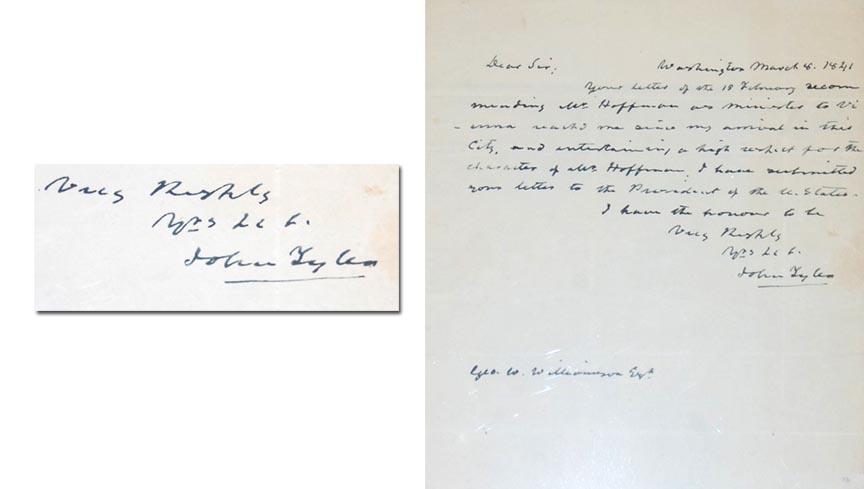 Very Respty
Yrs &c &.
John Tyler
Dear Sir; Washington March 8. 1841
Your letter of the 18 February recom
mending Mr. Hoffman as minister to Vi
-enna reach'd me since my arrival in this
City, and entertaining a high respect for the
character of Mr. Hoffman, I have submitted
your letter to the President of the U. States.
I have the honour to be
Very Respty
Yrs &c &.
John Tyler
Geo. W. Williamson Esqr